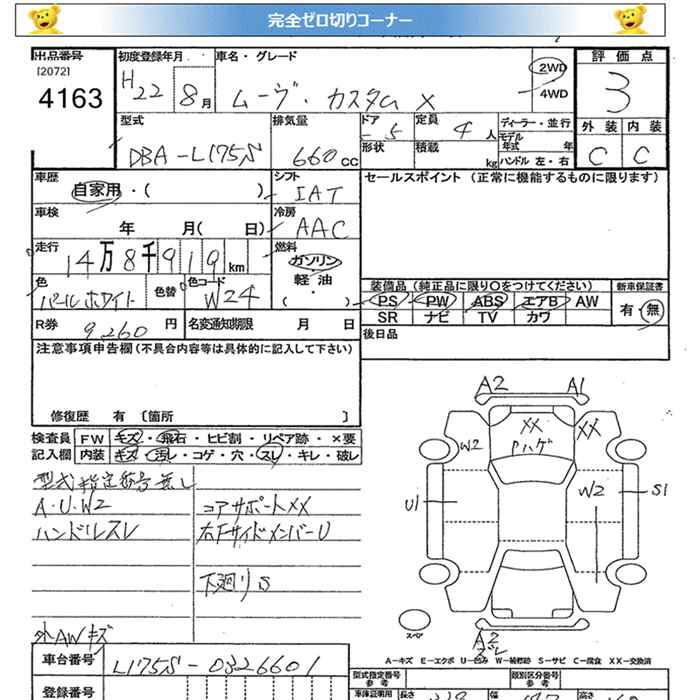 完全ゼロ切りコーナー
出品番号 初度登録年月 車名・グレード 2WD 評価点
[2072]
4163 H22 8月 ムーヴ・カスタム X 4WD 3
型式 排気量 ドア 5 定員 4人 ディーラー・並行 外装 内装
モデル年式 年
DBA-L175S 660cc 形状 積載 kg ハンドル 左・右 C C
車歴 シフト セールスポイント (正常に機能するものに限ります)
自家用・( ) IAT
車検 冷房
年 月( 日) AAC
走行 燃料
14万8千919km ガソリン
色 色替 色コード 軽油 装備品 (純正品に限り○をつけてください) 新車保証書
パールホワイト W24 ・( ) PS PW ABS エアB AW 有・無
R券 9,260円 名変通知期限 月 日 SR ナビ TV カワ
注意事項申告欄(不具合内容等は具体的に記入して下さい) 後日品
修復歴 有 〔箇所 〕
検査員 FW キズ・飛石・ヒビ割・リペア跡・×要
記入欄 内装 キズ・汚レ・コゲ・穴・スレ・キレ・破レ
型式指定番号無し
A・U・W2 コアサポートXX
ハンドルスレ 右FサイドメンバーU
下廻りS
外AWキズ
A2 A1
XX XX
W2 Pハゲ
U1 W2 S1
スペア
A2
ズレ
A-キズ E-エクボ U-凹み W-補修跡 S-サビ C-腐食 XX-交換済
車台番号 L175S-0326601 型式指定番号 参考 類別区分番号 参考
登録番号 車庫証明用 長さ 幅 高さ